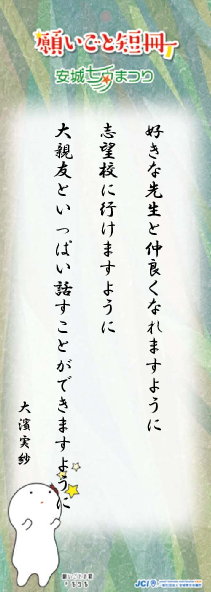 願いごと短冊
安城七夕まつり
好きな先生と仲良くなれますように
志望校に行けますように
大親友といっぱい話すことができますように
大濱実紗
JCI